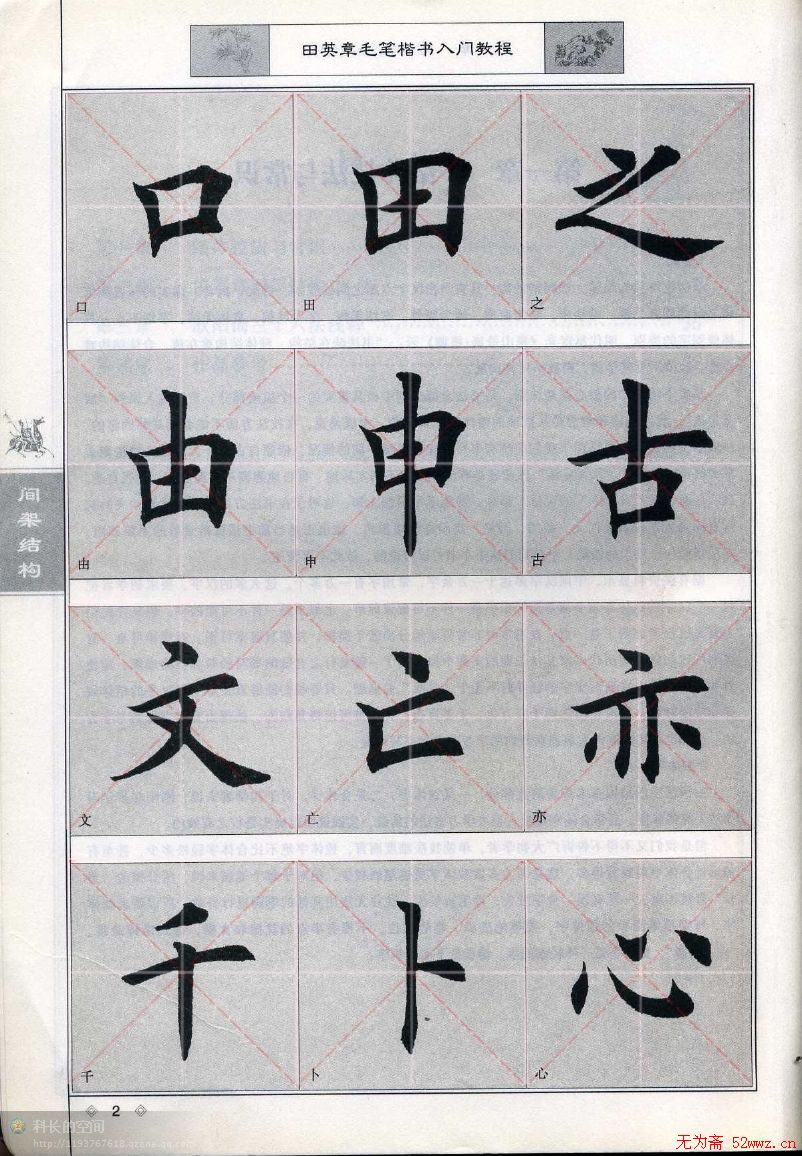 田英章毛笔楷书入门教程
口 田 之
口 田 之
由 申 古
由 申 古
间架结构
文 亡 亦
文 亡 亦
千 卜 心
千 卜 心
2
科长的空间
http://1193767618.qzone.qq.com
无为斋 52wwz.cn